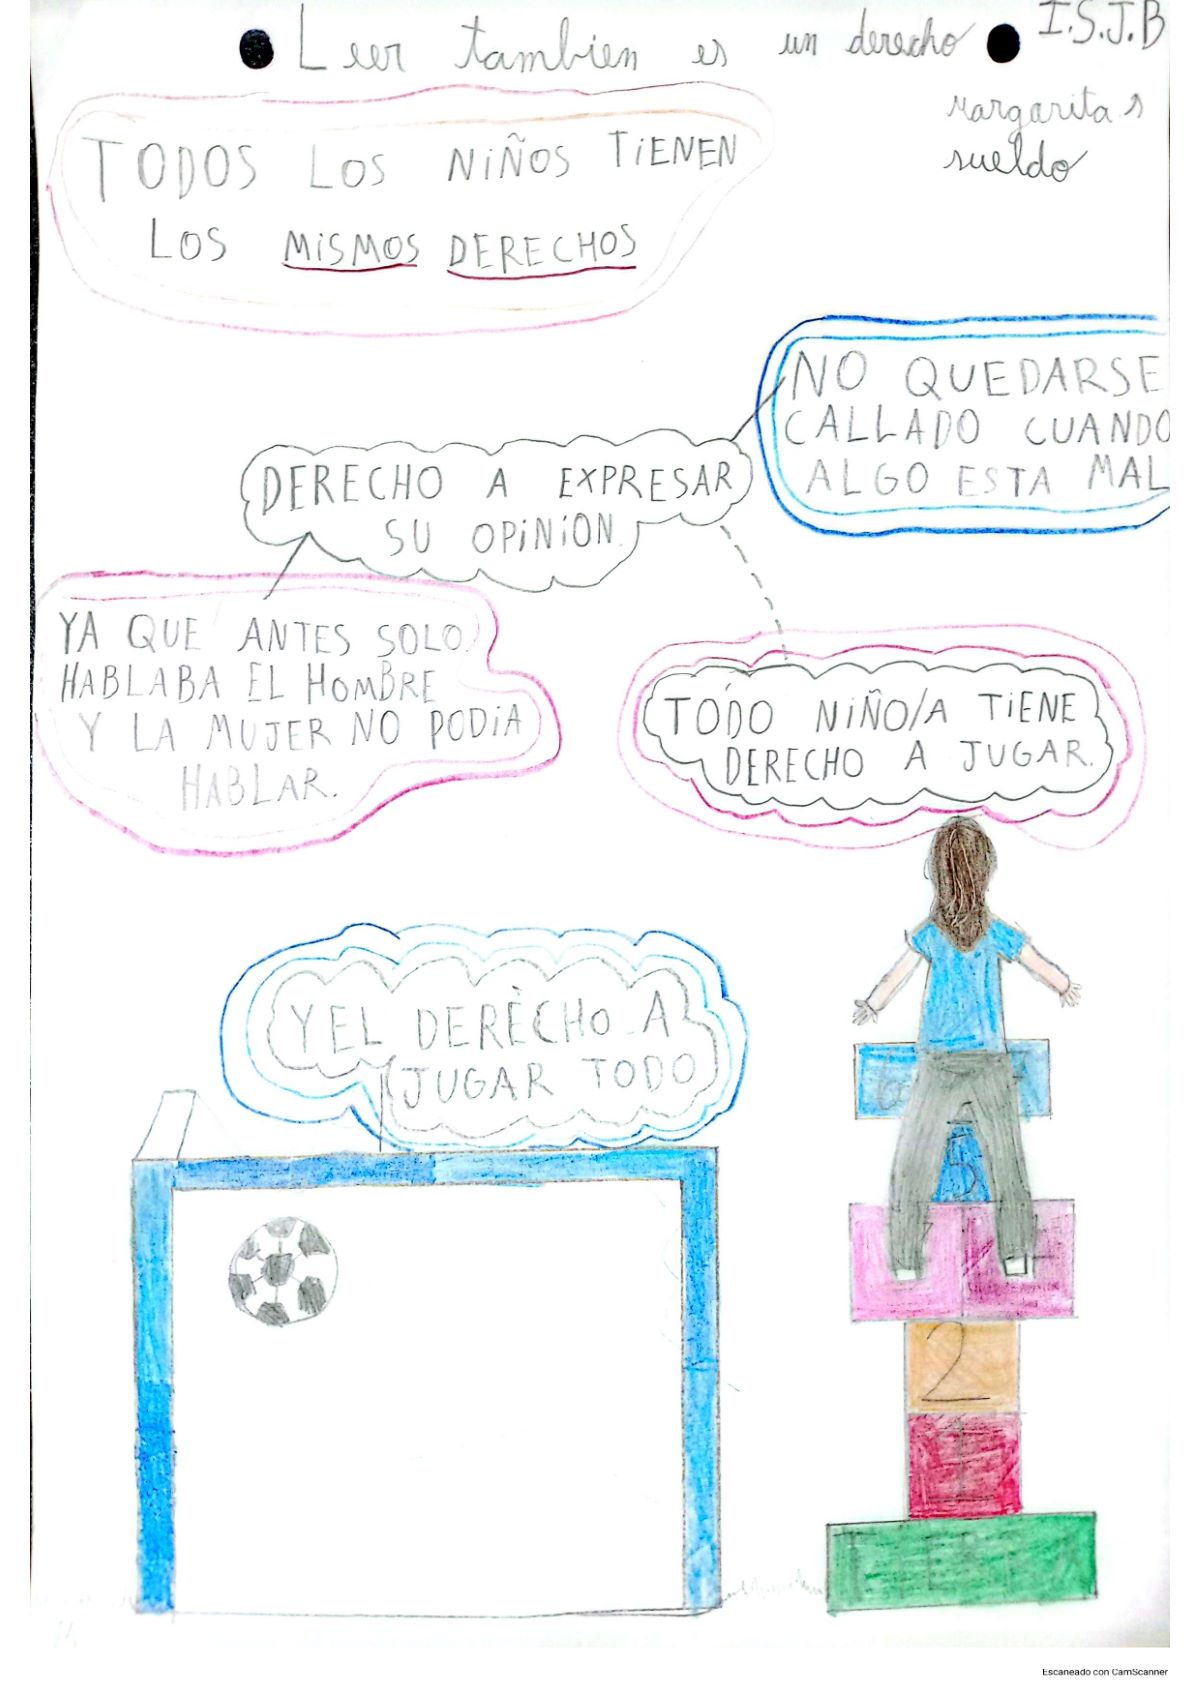 Leer tambien es un derecho
I.S.J.B
Margarita s
sueldo
TODOS LOS NiÑOS TiENEN
LOS MiSMOS DERECHOS
NO QUEDARSE
CALLADO CUANDO
ALGO ESTA MAL
DERECHO A EXPRESAR
SU OPiNiON.
YA QUE ANTES SOLO
HABLABA EL HOMBRE
Y LA MUJER NO PODiA
HABLAR.
TODO NiÑO/A TiENE
DERECHO A JUGAR.
Y EL DERÈCHO A
JUGAR TODO
6
5
4
2
1
Escaneado con CamScanner